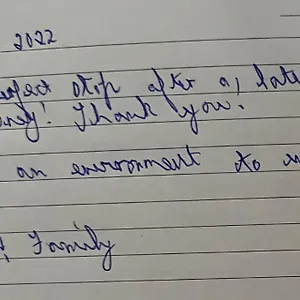 2022
stop after a late
! Thank you.
an environment to
Family